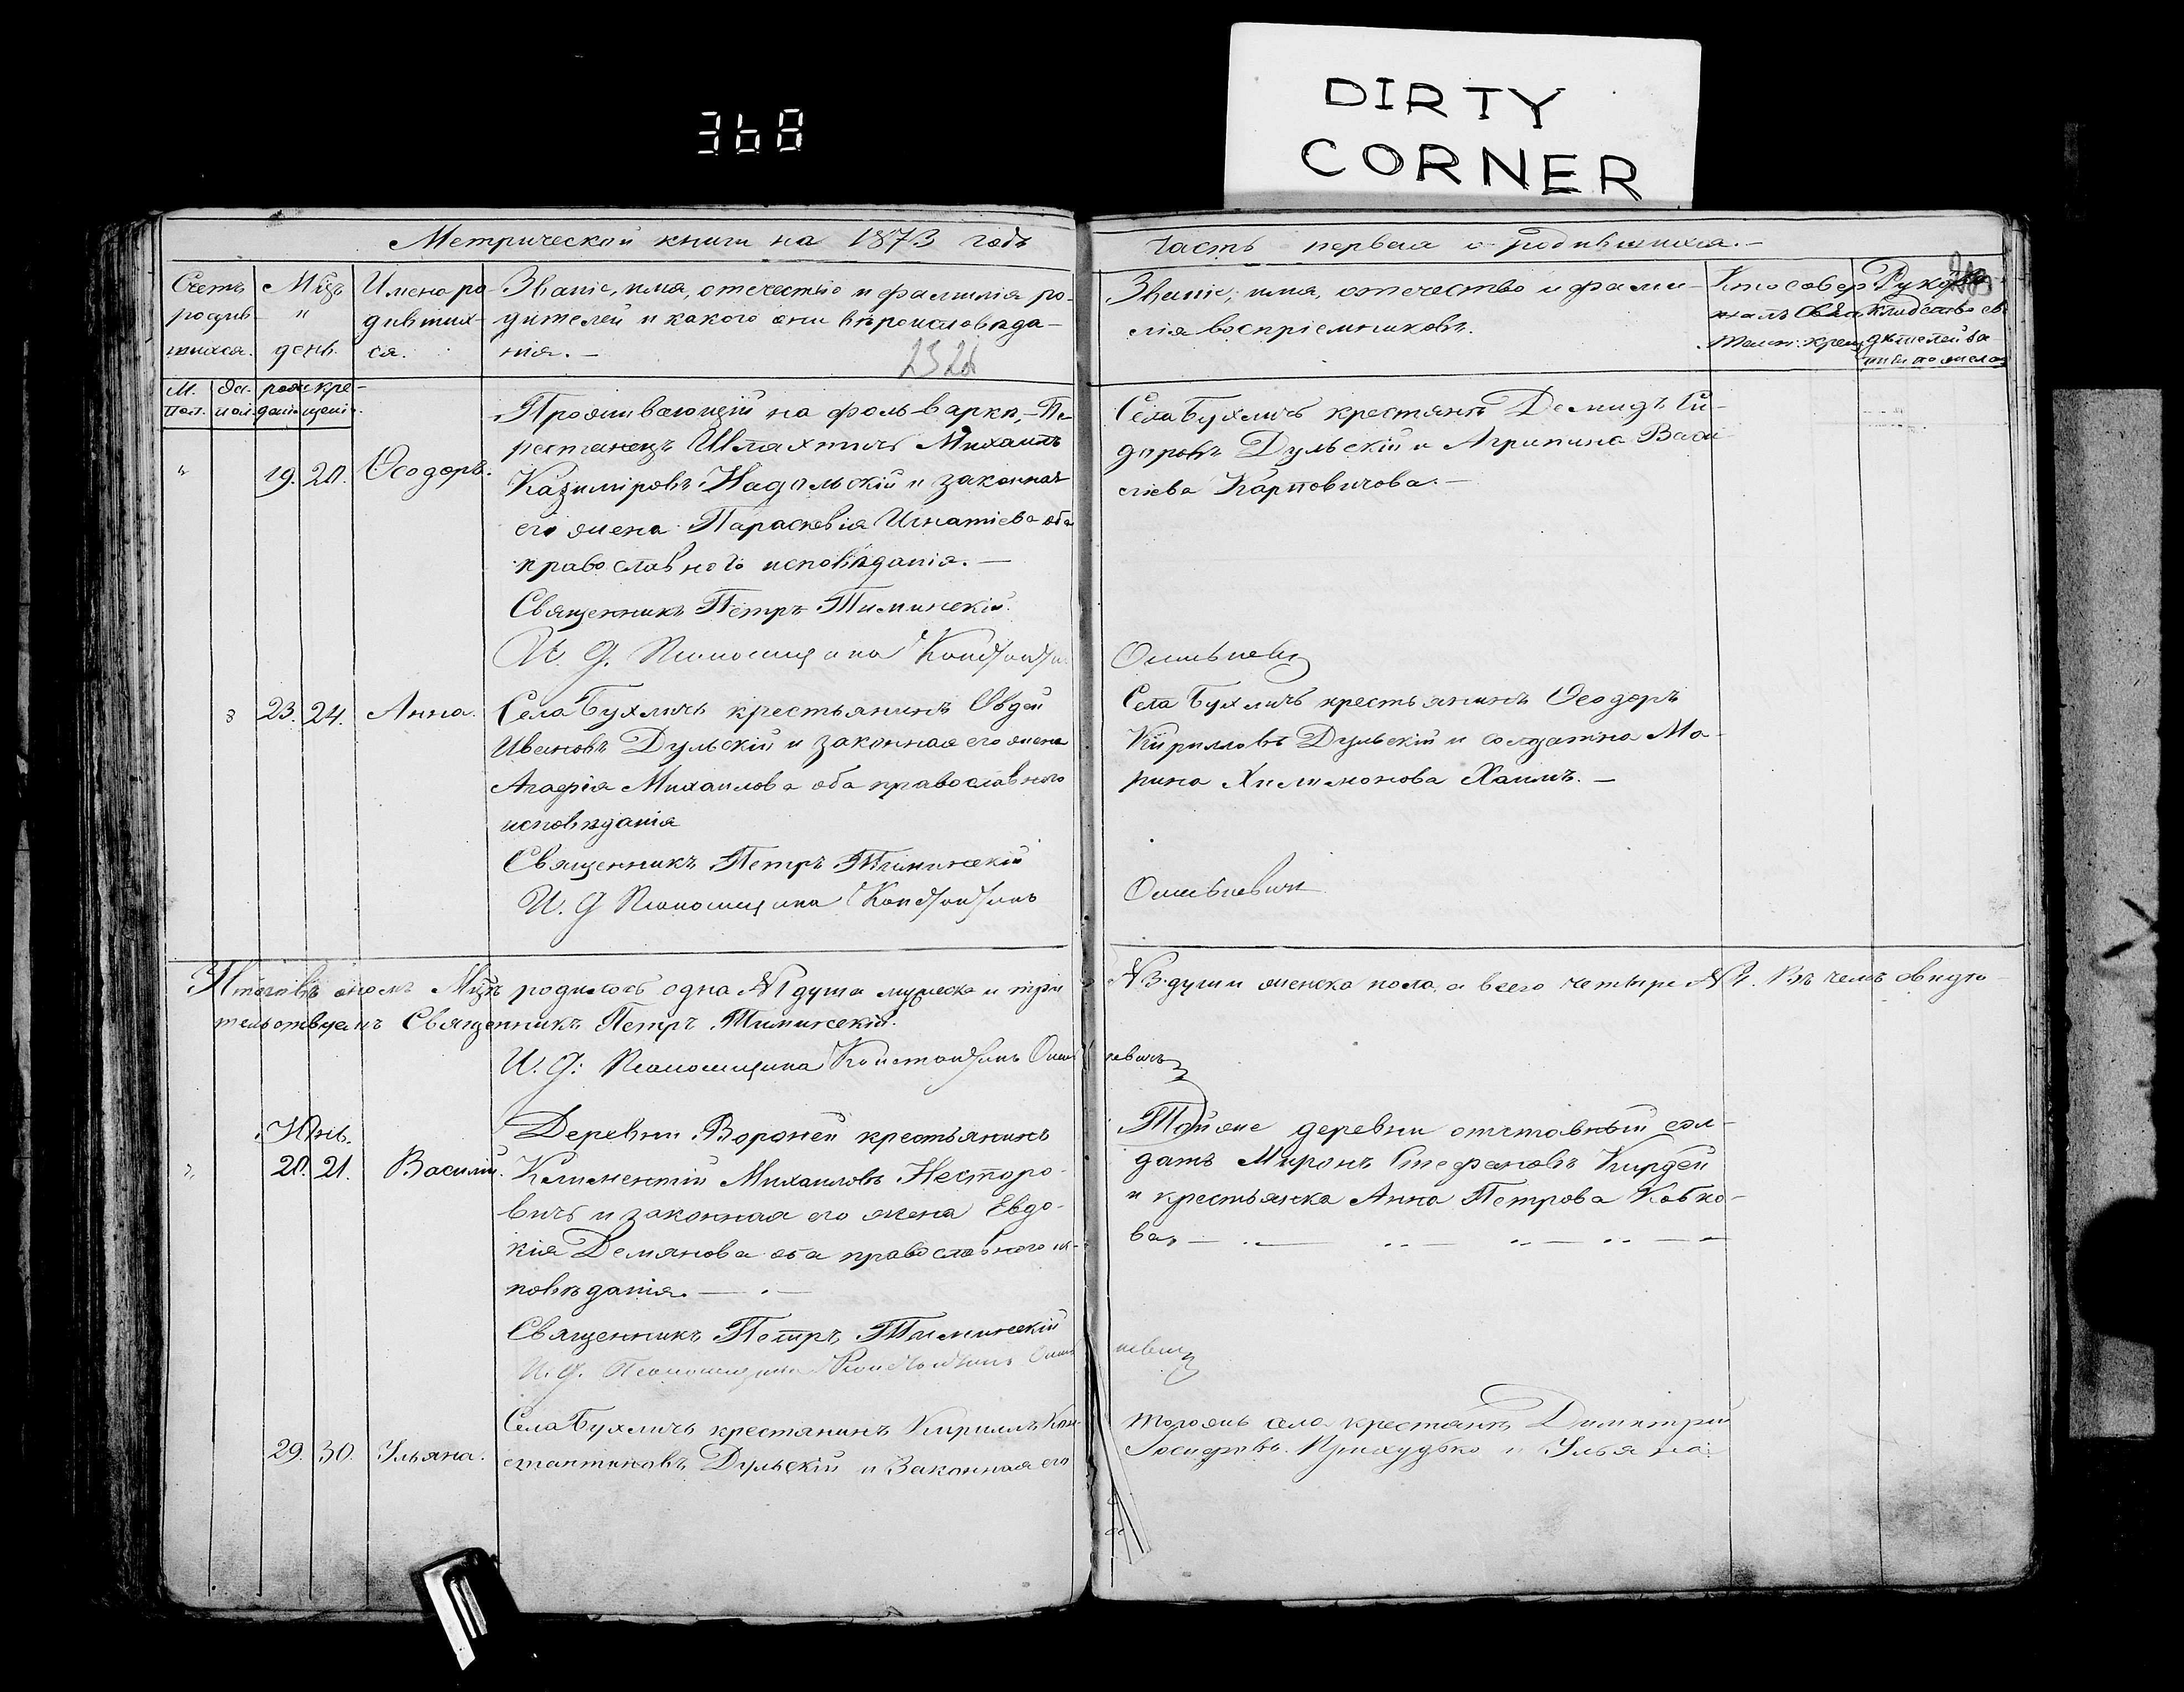 368
DIRTY
CORNER
Метрической книги на 1873 годъ
часть первая о родившихся.-
Счетъ родив- шихся.
Мцъ и день.
Имена ро- дившихъ- ся.
Званіе, имя, отечество и фамилія ро-
дителей и какого они вѣроисповѣда-
нія.-
Званіе, имя, отечество и фами-
лія воспріемниковъ.
Кто совер
шалъ
Рукопри
М. пол.
пол.
рож
кре-
"
19.
20.
Ѳеодоръ.
Проживающій на фольваркѣ,
Шляхтичъ Михаилъ
Казиміровъ Надольскій и законная
его жена Параскевія Игнатіева оба
православнаго исповѣданія.-
Священникъ Петръ Тиминскій.
И. д. Псаломщика Констан
Села Бухличъ крестянинъ Демидъ Си-
доровъ Дульскій и Агрипина Васи
ліева Карповичова.-
3
23.
24.
Анна.
Села Бухличъ крестьянинъ Овдей
Ивановъ Дульскій и законная его жена
Агафія Михаилова оба православного
исповѣданія
Священникъ Петръ Тиминскій
И. д Псаломщика Константинъ
Села Бухличъ крестьянинъ Ѳеодоръ
Кирилловъ Дульскій и солдатка Ма-
рина Хилимонова Хаимъ.-
Итого въ ономъ Мцѣ родилось одна №1 душа мужеска и три
№3 души женска пола, а всего четыре №4. Въ чемъ свидѣ-
тельствуемъ Священникъ Петръ Тиминскій.
И. д: Псаломщика Константинъ
Іюнь.
20.
21.
Василій.
Деревни Вороней крестьянинъ
Климентій Михаиловъ Несторо-
вичъ и законная его жена Евдо-
кія Демянова оба православного ис-
повѣданія.-
Священникъ Петръ Тиминскій
И. д. Псаломщика Константинъ
Тойже деревни отставный сол-
датъ Миронъ Стефановъ Кирдей
и крестьянка Анна Петрова Кобко-
ва,-
29.
30.
Ульяна.
Села Бухличъ крестянинъ Кириллъ Кон-
стантиновъ Дульскій и Законная его
Тогожъ села крестянинъ Димитрій
и Ульяна